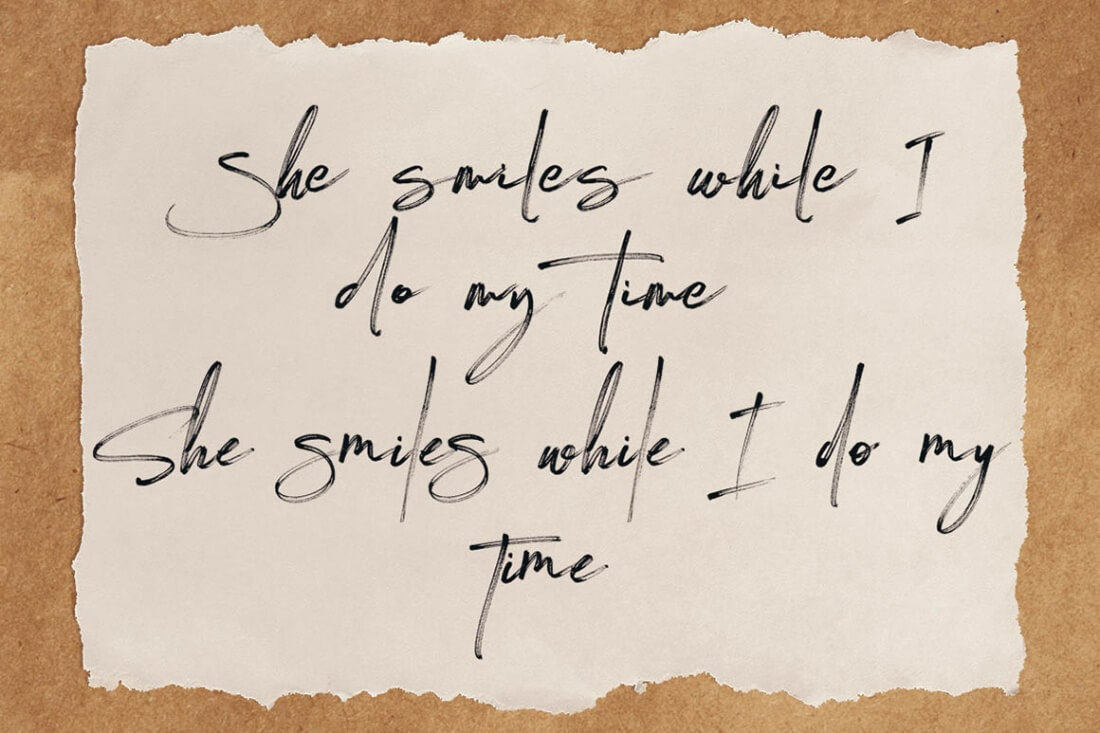 She smiles while I
do my time
She smiles while I do my
time